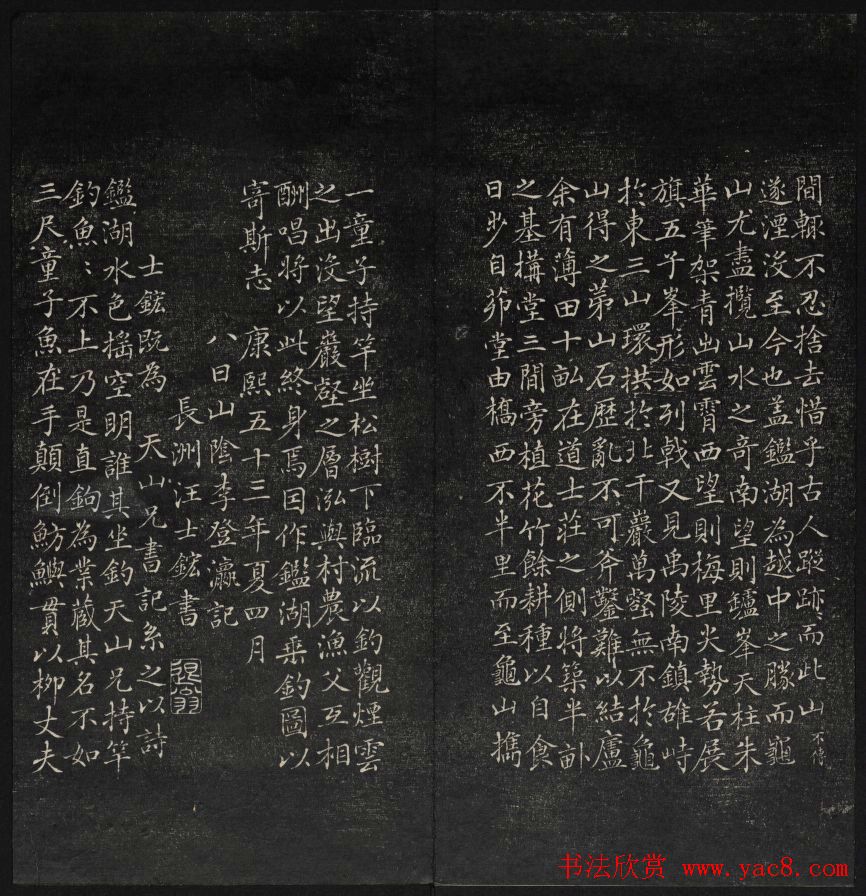 間輒不忍捨去惜乎古人蹤跡而此山不傳
遂湮沒至今也盖鑑湖為越中之勝而龜
山尤盡攬山水之奇南望則鑪峯天柱朱
華筆架青出雲霄西望則梅里尖勢若展
旗五子峯形如列戟又見禹陵南鎮雄峙
於東三山環拱於北千巖萬壑無不於龜
山得之苐山石歷亂不可斧鑿難以結廬
余有薄田十畝在道士莊之側將築半畝
之基搆堂三間旁植花竹餘耕種以自食
日步自茆堂由橋西不半里而至龜山攜
一童子持竿坐松樹下臨流以釣觀煙雲
之出沒望巖壑之層泓與村農漁父互相
酬唱將以此終身焉因作鑑湖乗釣圖以
寄斯志 康熙五十三年夏四月
八日山陰李登瀛記
長洲汪士鋐書
士鋐既為 天山兄書記系之以詩
鑑湖水色搖空明誰其坐釣天山兄持竿
釣魚〻不上乃是直鉤為業蔵其名不如
三尺童子魚在手顛倒魴鱮貫以柳丈夫
书法欣赏 www.yac8.com